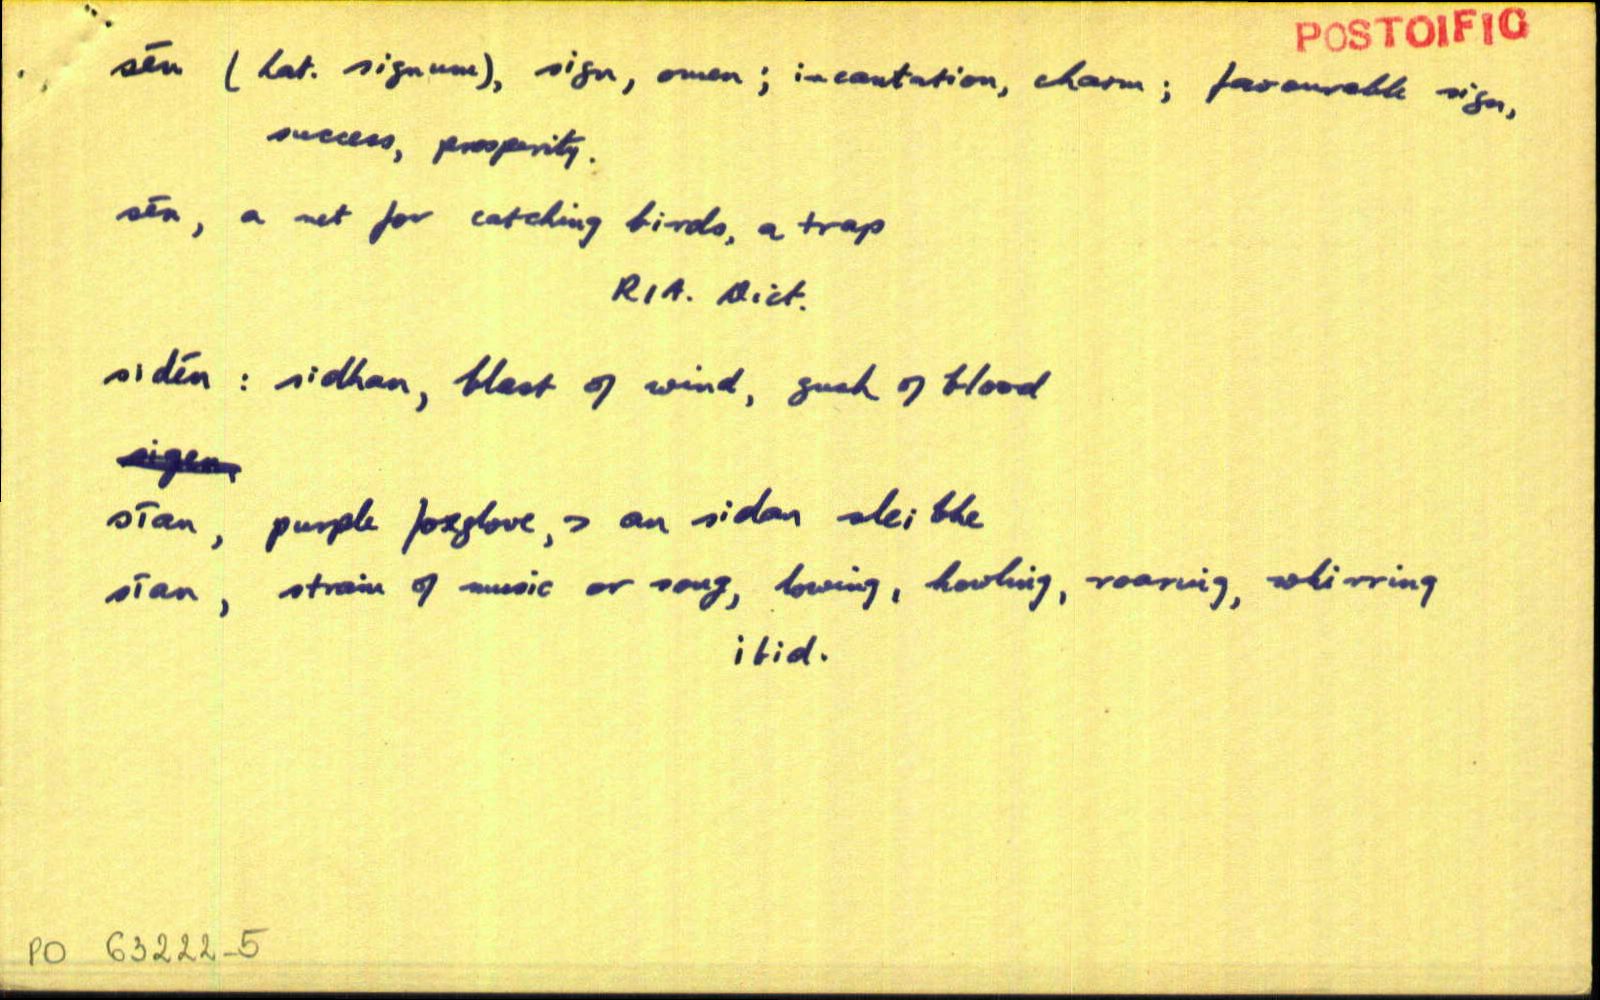 POSTOIFIG
sēn (Lat. signum), sign, omen; incantation, charm; favourable sign,
success, prosperity.
sēn, a net for catching birds, a trap
RIA. Dict.
sidēn : sidhan, blast of wind, gush of blood
sigen,
sīan, purple foxglove, > an sidan sleibhe
sīan, strain of music or song, lowing, howling, roaring, whirring
ibid.
PO 63222-5